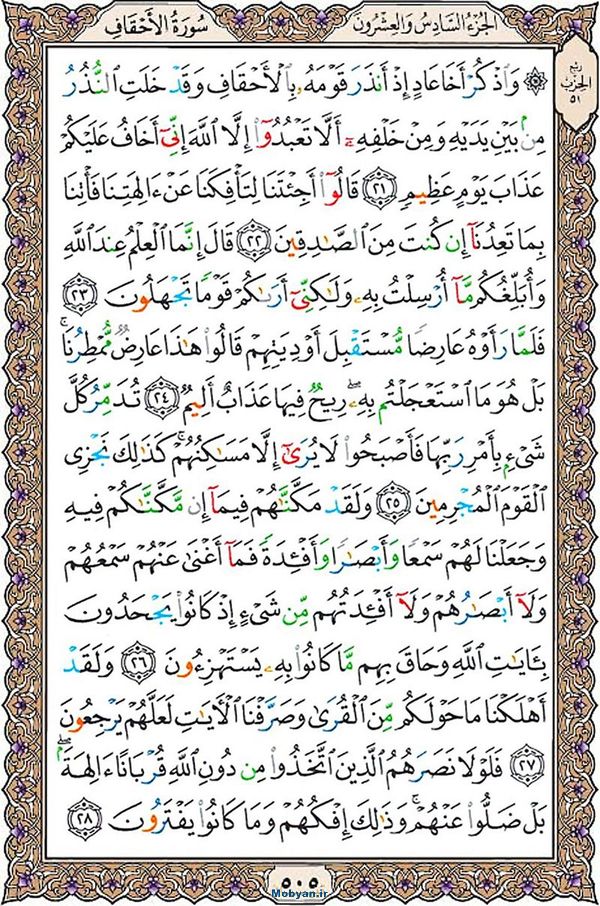 سُورَةُ الأَحْقَافِ
الجُزءُ السَّادِسُ وَالعِشْرُونَ
ربع
الحزب
٥١
۞ وَٱذْكُرْ أَخَا عَادٍ إِذْ أَنذَرَ قَوْمَهُۥ بِٱلْأَحْقَافِ وَقَدْ خَلَتِ ٱلنُّذُرُ
مِنۢ بَيْنِ يَدَيْهِ وَمِنْ خَلْفِهِۦٓ أَلَّا تَعْبُدُوٓا۟ إِلَّا ٱللَّهَ إِنِّىٓ أَخَافُ عَلَيْكُمْ
عَذَابَ يَوْمٍ عَظِيمٍ ٢١ قَالُوٓا۟ أَجِئْتَنَا لِتَأْفِكَنَا عَنْ ءَالِهَتِنَا فَأْتِنَا
بِمَا تَعِدُنَآ إِن كُنتَ مِنَ ٱلصَّـٰدِقِينَ ٢٢ قَالَ إِنَّمَا ٱلْعِلْمُ عِندَ ٱللَّهِ
وَأُبَلِّغُكُم مَّآ أُرْسِلْتُ بِهِۦ وَلَـٰكِنِّىٓ أَرَىٰكُمْ قَوْمًا تَجْهَلُونَ ٢٣
فَلَمَّا رَأَوْهُ عَارِضًا مُّسْتَقْبِلَ أَوْدِيَتِهِمْ قَالُوا۟ هَـٰذَا عَارِضٌ مُّمْطِرُنَا ۚ
بَلْ هُوَ مَا ٱسْتَعْجَلْتُم بِهِۦ ۖ رِيحٌ فِيهَا عَذَابٌ أَلِيمٌ ٢٤ تُدَمِّرُ كُلَّ
شَىْءٍۭ بِأَمْرِ رَبِّهَا فَأَصْبَحُوا۟ لَا يُرَىٰٓ إِلَّا مَسَـٰكِنُهُمْ ۚ كَذَٰلِكَ نَجْزِى
ٱلْقَوْمَ ٱلْمُجْرِمِينَ ٢٥ وَلَقَدْ مَكَّنَّـٰهُمْ فِيمَآ إِن مَّكَّنَّـٰكُمْ فِيهِ
وَجَعَلْنَا لَهُمْ سَمْعًا وَأَبْصَـٰرًا وَأَفْـِٔدَةً فَمَآ أَغْنَىٰ عَنْهُمْ سَمْعُهُمْ
وَلَآ أَبْصَـٰرُهُمْ وَلَآ أَفْـِٔدَتُهُم مِّن شَىْءٍ إِذْ كَانُوا۟ يَجْحَدُونَ
بِـَٔايَـٰتِ ٱللَّهِ وَحَاقَ بِهِم مَّا كَانُوا۟ بِهِۦ يَسْتَهْزِءُونَ ٢٦ وَلَقَدْ
أَهْلَكْنَا مَا حَوْلَكُم مِّنَ ٱلْقُرَىٰ وَصَرَّفْنَا ٱلْـَٔايَـٰتِ لَعَلَّهُمْ يَرْجِعُونَ
٢٧ فَلَوْلَا نَصَرَهُمُ ٱلَّذِينَ ٱتَّخَذُوا۟ مِن دُونِ ٱللَّهِ قُرْبَانًا ءَالِهَةًۢ ۖ
بَلْ ضَلُّوا۟ عَنْهُمْ ۚ وَذَٰلِكَ إِفْكُهُمْ وَمَا كَانُوا۟ يَفْتَرُونَ ٢٨
٥٠٥
Mobyan.ir